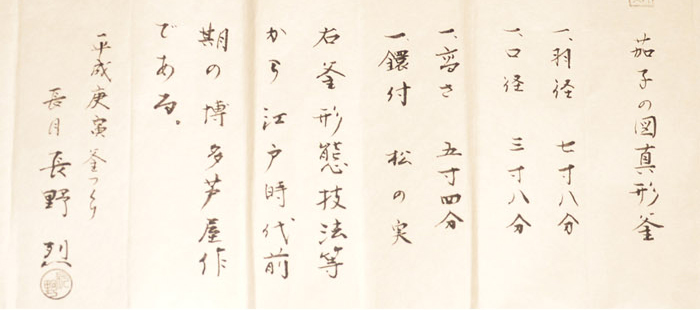 茄子の図真形釜
一、羽径 七寸八分
一、口径 三寸八分
一、高さ 五寸四分
一、鐶付 松の実
右釜形態技法等
から江戸時代前
期の博多芦屋作
である。
平成庚寅 釜つくり
長月 長野 烈